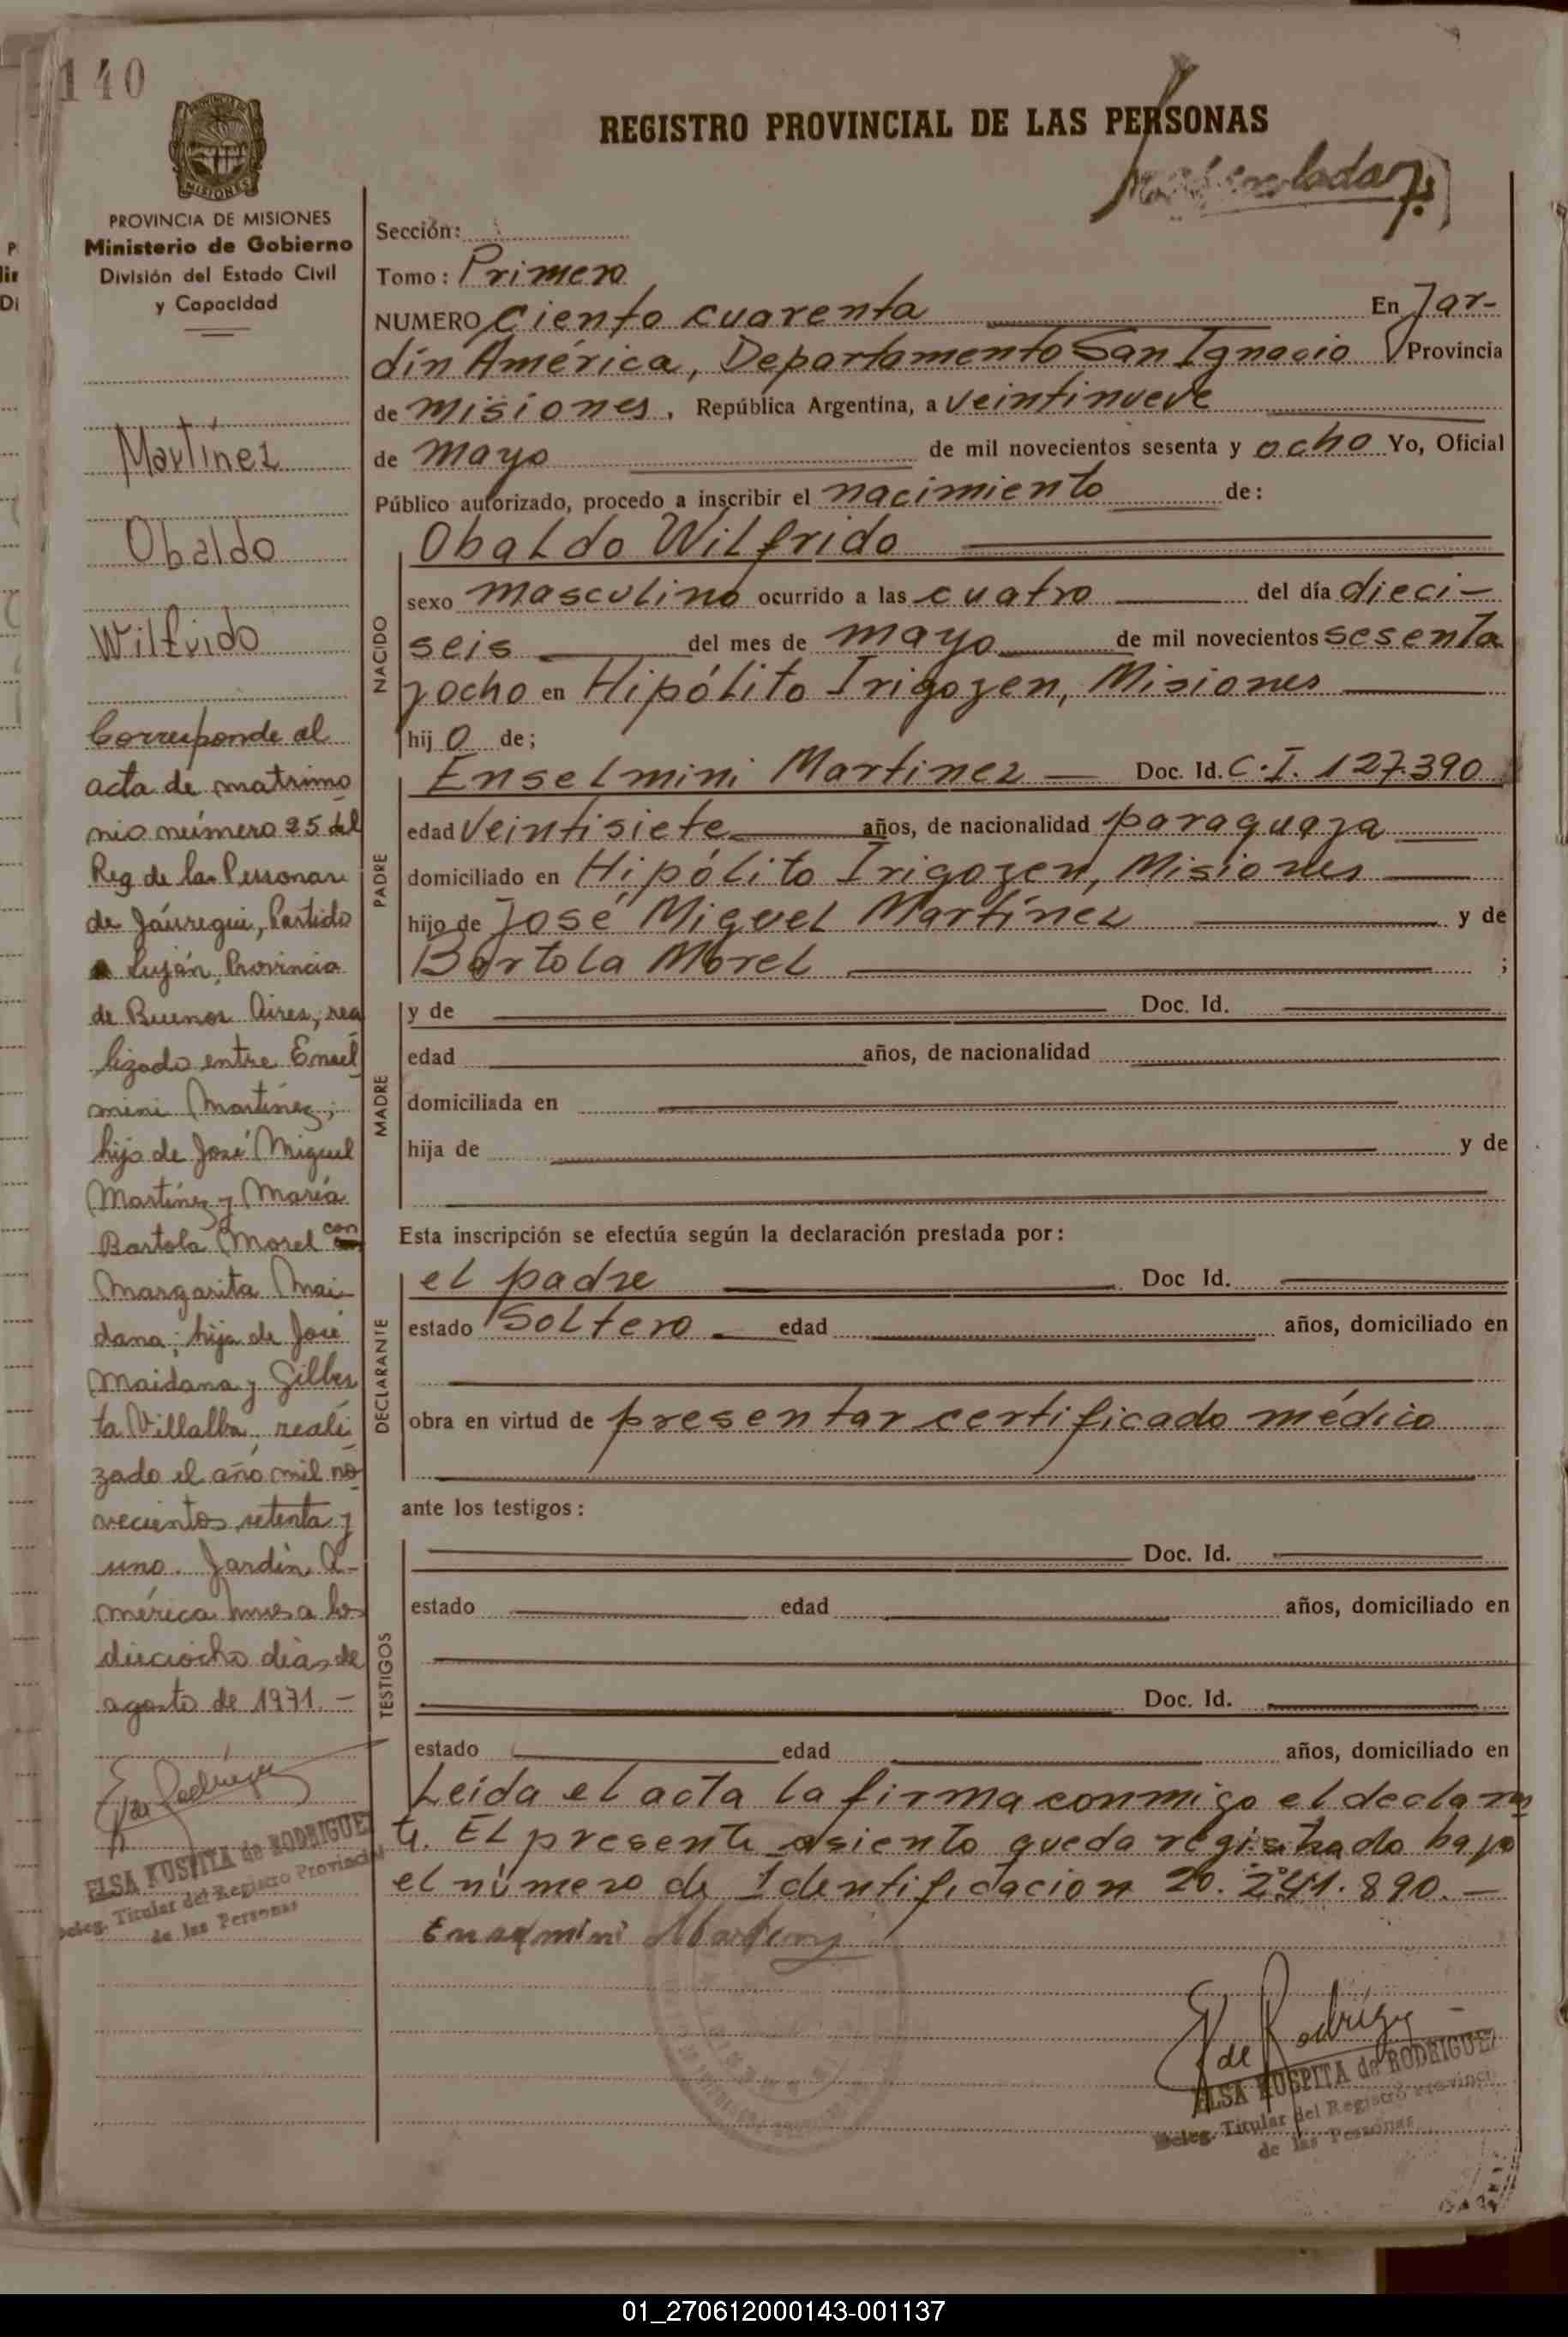 140
PROVINCIA DE MISIONES
Ministerio de Gobierno
División del Estado Civil
y Capacidad
Martínez
Obaldo
Wilfrido
Corresponde al
acta de matrimo
nio número 25 del
Reg de las Personas
de Jáuregui, Partido
Luján, Provincia
de Buenos Aires, rea
lizado entre Ensel
mini Martínez,
hijo de José Miguel
Martínez y María
Bartola Morel con
Margarita Mai-
dana, hija de José
Maidana y Gilber
ta Villalba, reali
zado el año mil no
vecientos setenta y
uno. Jardín A-
mérica, a los
dieciocho días de
agosto de 1971.-
ELSA KUSPITA de RODRIGUEZ
Deleg. Titular del Registro Provincial
de las Personas
REGISTRO PROVINCIAL DE LAS PERSONAS
Sección:
Tomo: Primero
NUMERO Ciento cuarenta En Jar-
dín América, Departamento San Ignacio Provincia
de Misiones, República Argentina, a veintinueve
de mayo de mil novecientos sesenta y ocho Yo, Oficial
Público autorizado, procedo a inscribir el nacimiento de:
NACIDO
Obaldo Wilfrido
sexo masculino ocurrido a las cuatro del día dieci-
seis del mes de mayo de mil novecientos sesenta
y ocho en Hipólito Irigoyen, Misiones
hijo de;
PADRE
Enselmini Martinez Doc. Id. C.I. 127.390
edad veintisiete años, de nacionalidad paraguaya
domiciliado en Hipólito Irigoyen, Misiones
hijo de José Miguel Martínez y de
Bartola Morel ;
MADRE
y de Doc. Id.
edad años, de nacionalidad
domiciliada en
hija de y de
Esta inscripción se efectúa según la declaración prestada por:
DECLARANTE
el padre Doc Id.
estado Soltero edad años, domiciliado en
obra en virtud de presentar certificado médico
ante los testigos:
TESTIGOS
Doc. Id.
estado edad años, domiciliado en
Doc. Id.
estado edad años, domiciliado en
Leída el acta la firma conmigo el declaran
te. El presente asiento queda registrado bajo
el número de Identificación 20.241.890.-
Enselmini Martinez
E de Rodríguez
ELSA KUSPITA de RODRIGUEZ
Deleg. Titular del Registro Provincial
de las Personas
01_270612000143-001137